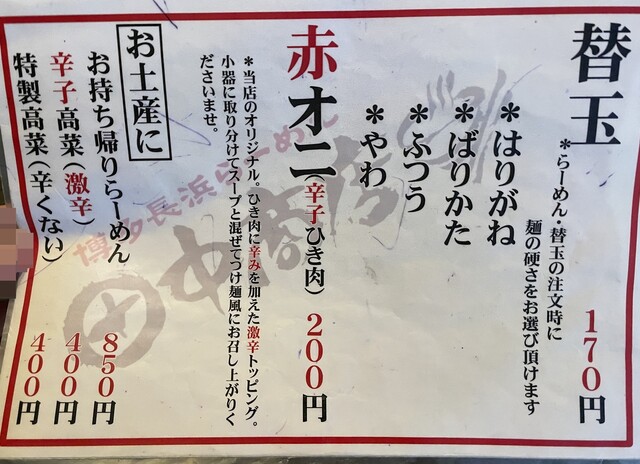 替玉 170円
*らーめん・替玉の注文時に
麺の硬さをお選び頂けます
*はりがね
*ばりかた
*ふつう
*やわ
赤オニ(辛子ひき肉) 200円
*当店のオリジナル。ひき肉に辛みを加えた激辛トッピング。
小器に取り分けてスープと混ぜてつけ麺風にお召し上がりく
ださいませ。
お土産に
お持ち帰りらーめん 850円
辛子高菜(激辛) 400円
特製高菜(辛くない) 400円
博多長浜らーめん